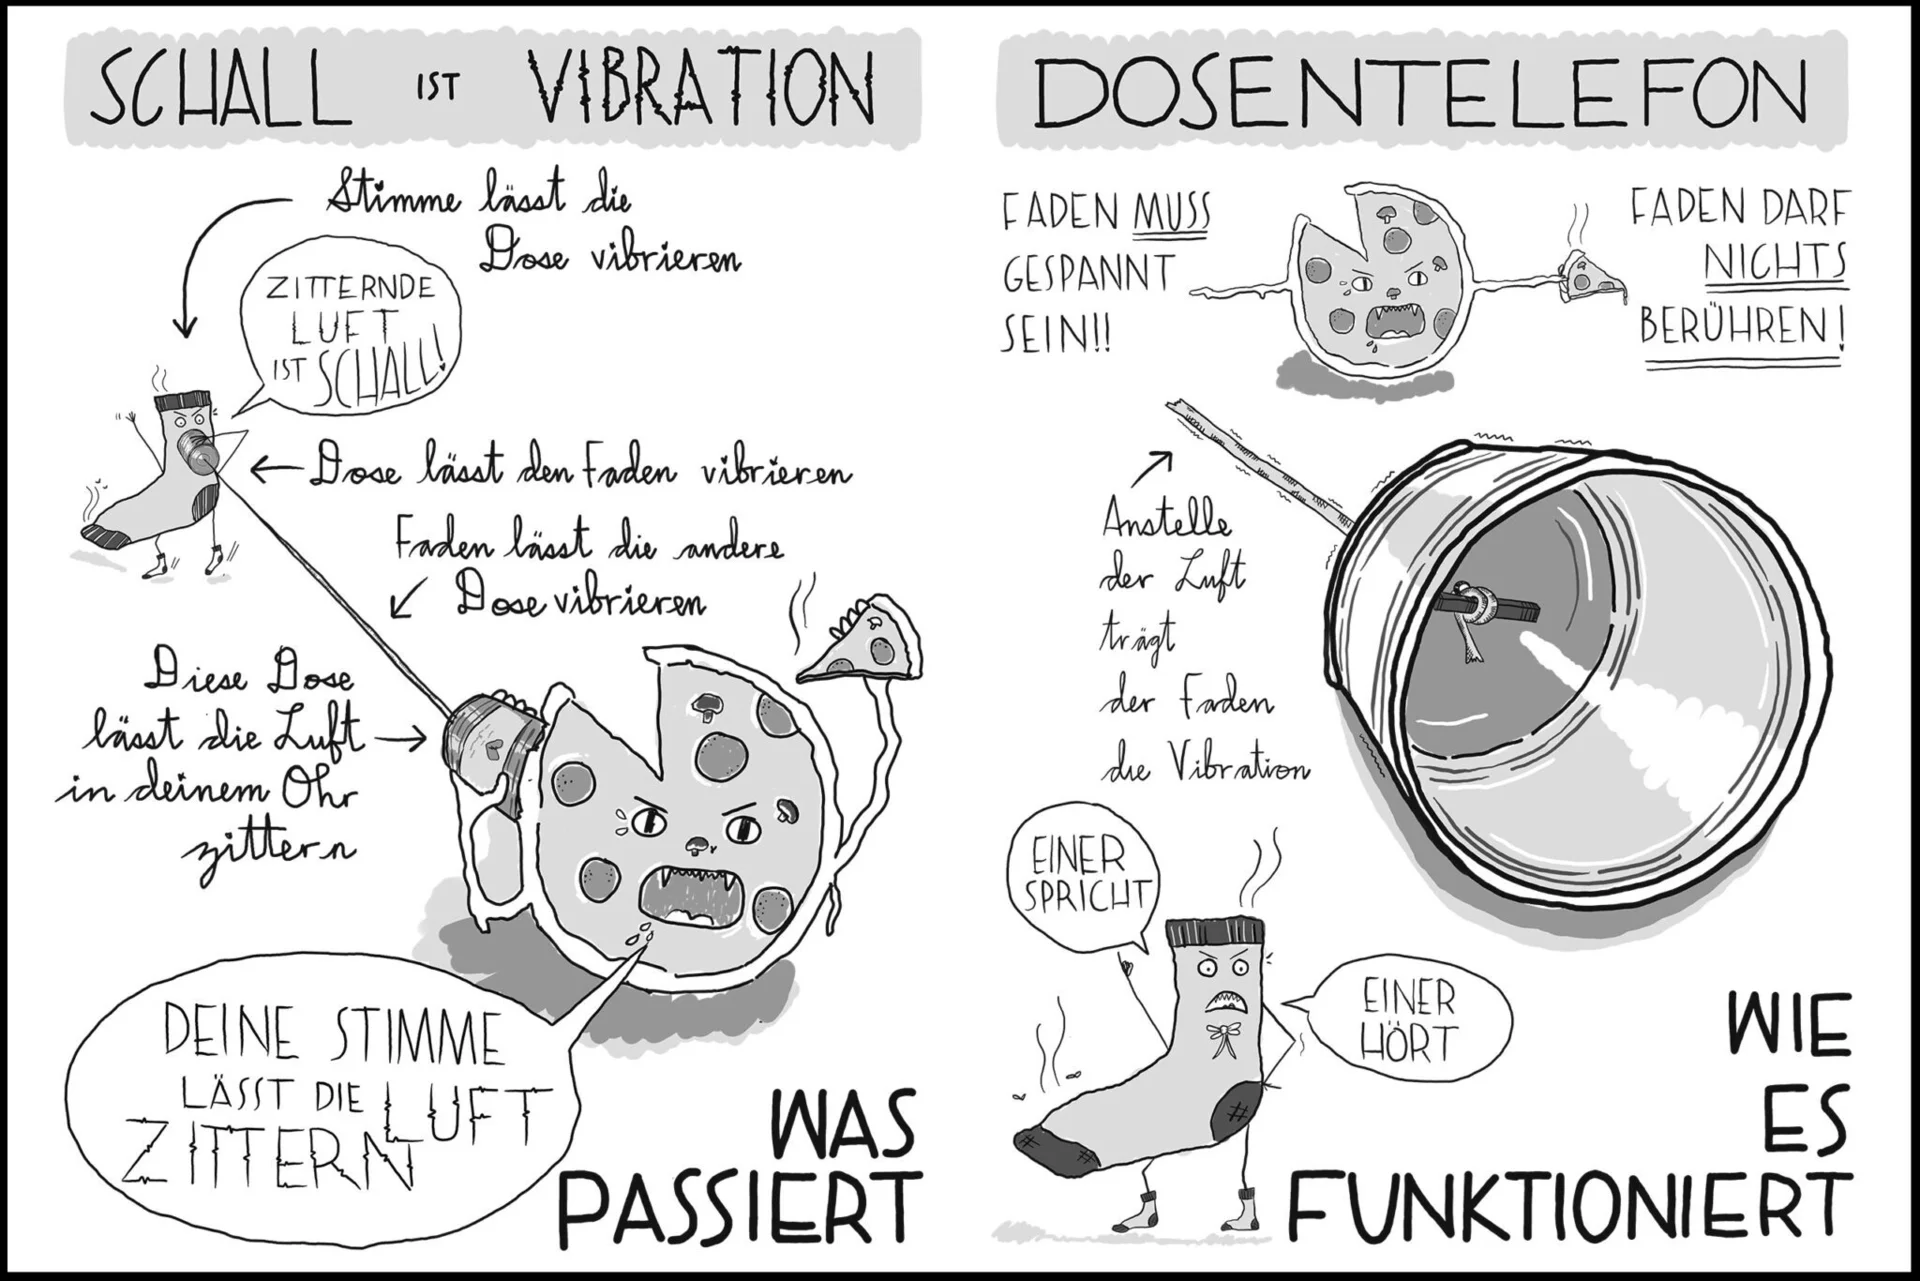 SCHALL IST VIBRATION
Stimme lässt die
Dose vibrieren
ZITTERNDE
LUFT
IST SCHALL!
Dose lässt den Faden vibrieren
Faden lässt die andere
Dose vibrieren
Diese Dose
lässt die Luft
in deinem Ohr
zittern
DEINE STIMME
LÄSST DIE LUFT
ZITTERN
WAS
PASSIERT
DOSENTELEFON
FADEN MUSS
GESPANNT
SEIN!!
FADEN DARF
NICHTS
BERÜHREN!
Anstelle
der Luft
trägt
der Faden
die Vibration
EINER
SPRICHT
EINER
HÖRT
WIE
ES
FUNKTIONIERT